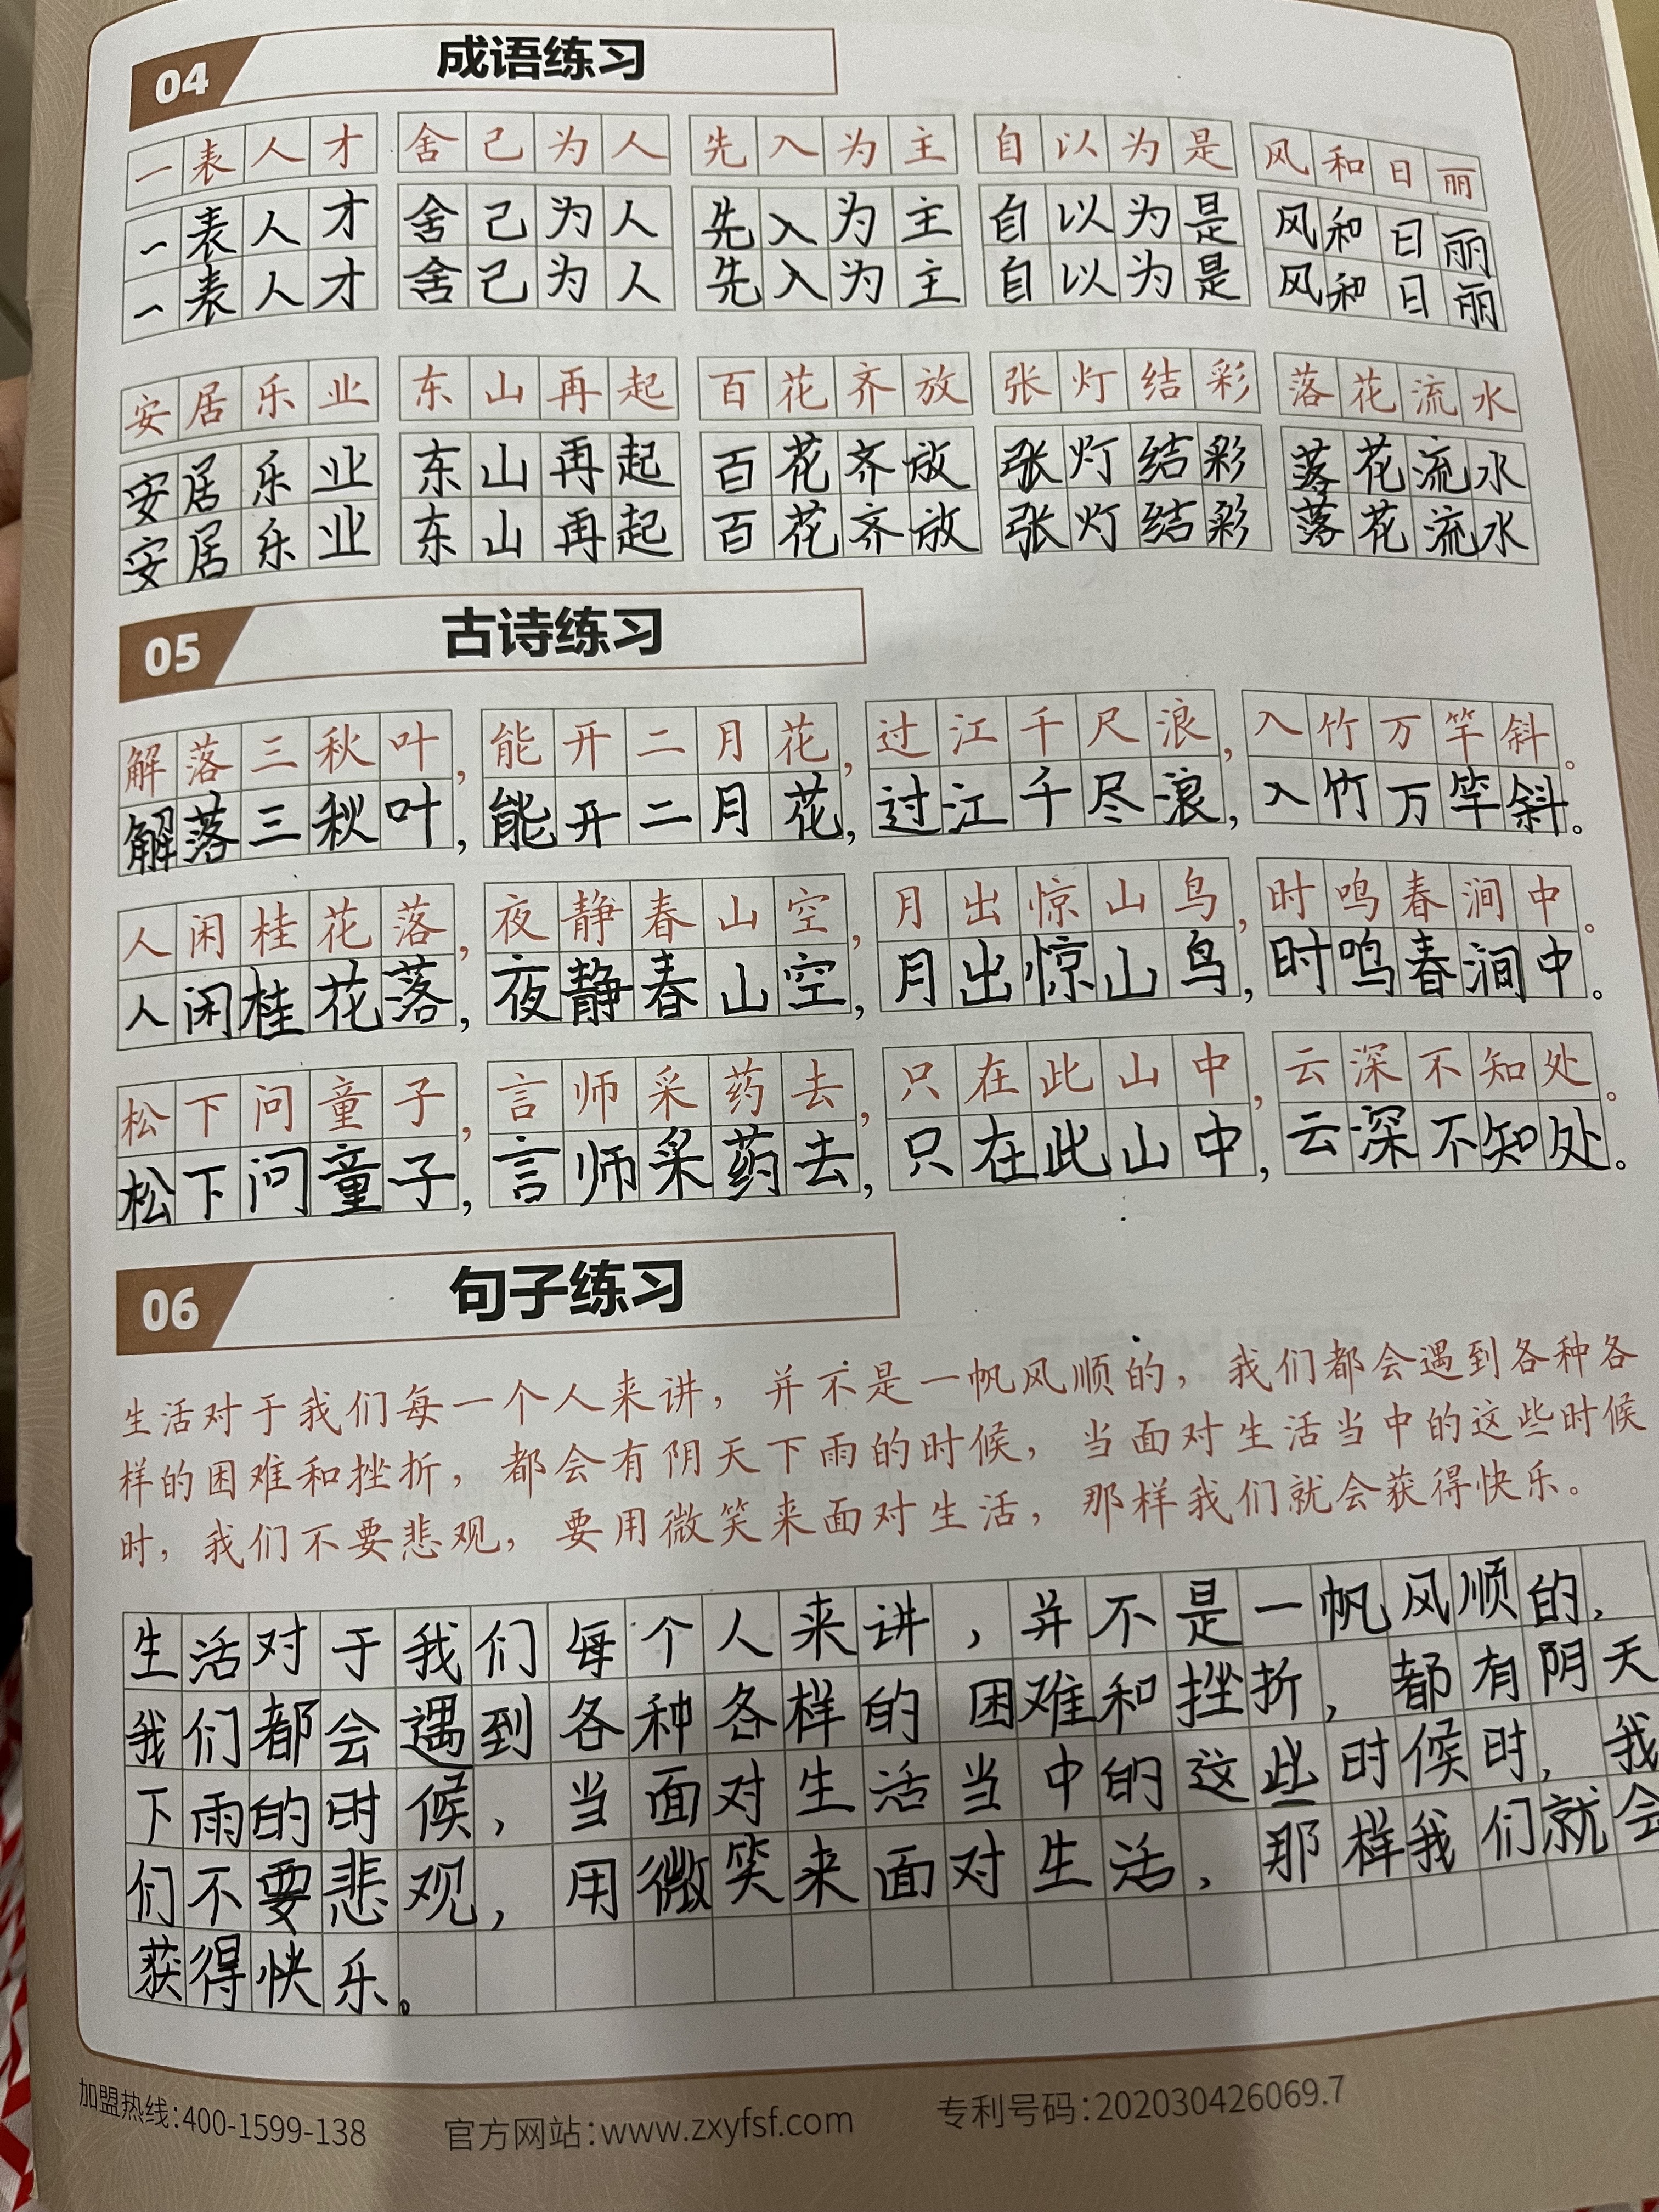 04 成语练习
一表人才 舍己为人 先入为主 自以为是 风和日丽
一表人才 舍己为人 先入为主 自以为是 风和日丽
一表人才 舍己为人 先入为主 自以为是 风和日丽
安居乐业 东山再起 百花齐放 张灯结彩 落花流水
安居乐业 东山再起 百花齐放 张灯结彩 落花流水
安居乐业 东山再起 百花齐放 张灯结彩 落花流水
05 古诗练习
解落三秋叶，能开二月花，过江千尺浪，入竹万竿斜。
解落三秋叶，能开二月花，过江千尽浪，入竹万竿斜。
人闲桂花落，夜静春山空，月出惊山鸟，时鸣春涧中。
人闲桂花落，夜静春山空，月出惊山鸟，时鸣春涧中。
松下问童子，言师采药去，只在此山中，云深不知处。
松下问童子，言师采药去，只在此山中，云深不知处。
06 句子练习
生活对于我们每一个人来讲，并不是一帆风顺的，我们都会遇到各种各
样的困难和挫折，都会有阴天下雨的时候，当面对生活当中的这些时候
时，我们不要悲观，要用微笑来面对生活，那样我们就会获得快乐。
生活对于我们每个人来讲，并不是一帆风顺的，
我们都会遇到各种各样的困难和挫折，都有阴天
下雨的时候，当面对生活当中的这些时候时，我
们不要悲观，用微笑来面对生活，那样我们就会
获得快乐。
加盟热线:400-1599-138 官方网站:www.zxyfsf.com 专利号码:202030426069.7